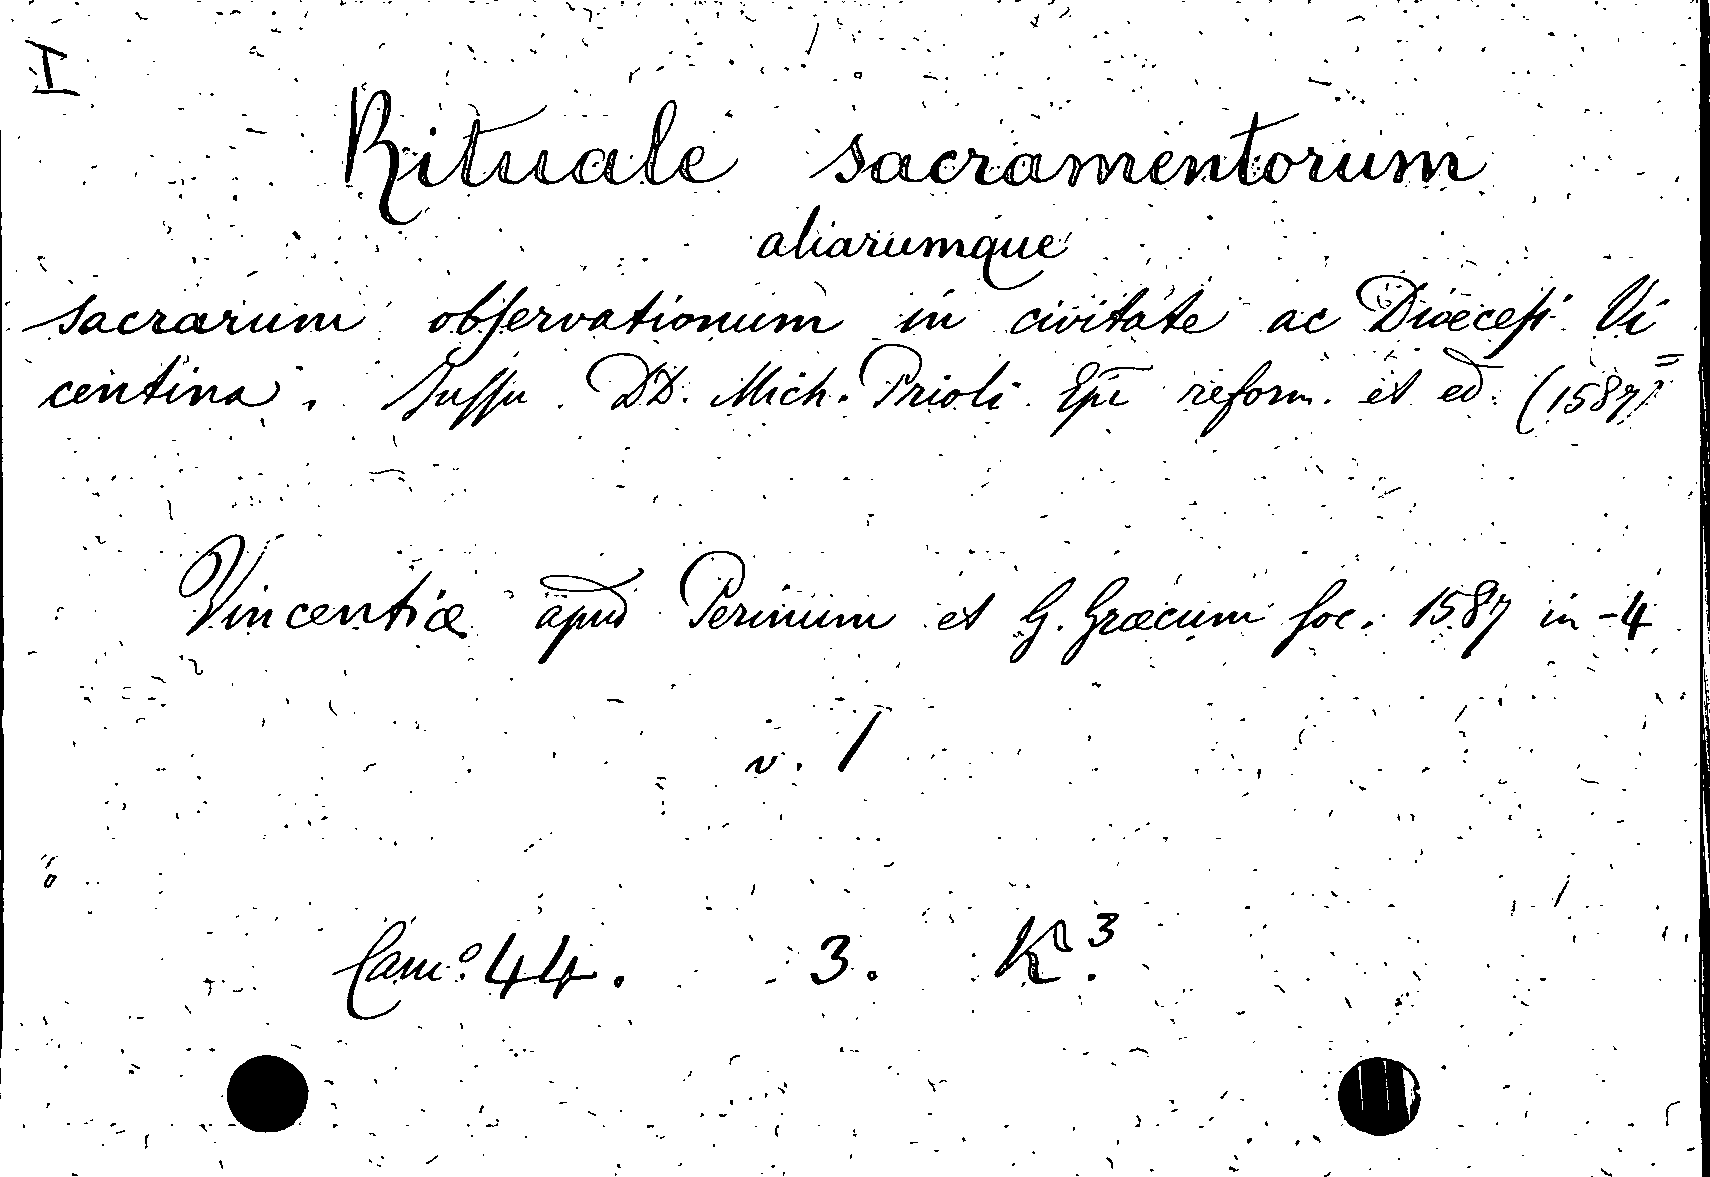 I
Rituale sacramentorum
aliarumque
sacrarum obſervationum in civitate ac Diœceſi Vi=
centina. Juſſu DD. Mich. Prioli Epī reform. et ed. (1587)
Vincentiæ apud Perinum et G. Græcum ſoc. 1587 in-4
v. 1
Camº. 44. 3. K³.